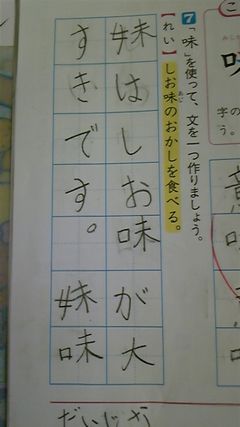 7 「味」を使って、文を一つ作りましょう。
【れい】しお味のおかしを食べる。
妹はしお味が大
すきです。妹味